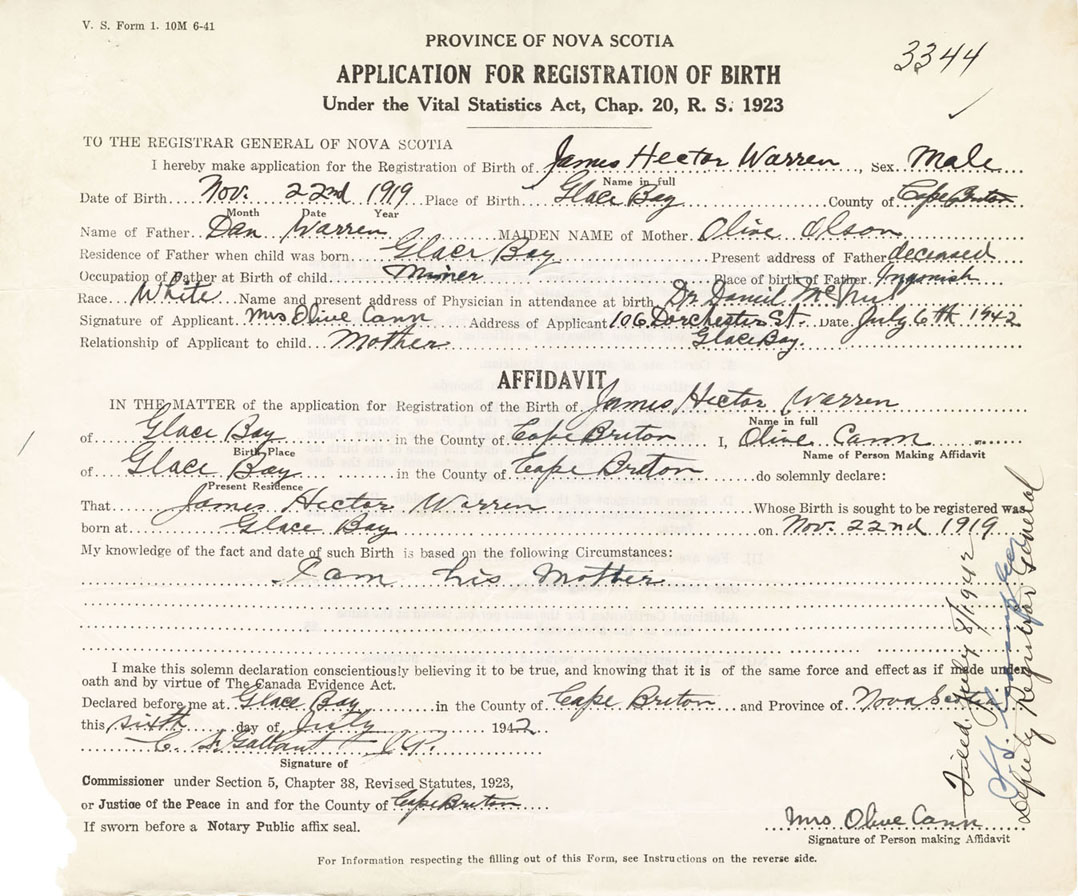 V. S. Form 1. 10M 6-41
3344
PROVINCE OF NOVA SCOTIA
APPLICATION FOR REGISTRATION OF BIRTH
Under the Vital Statistics Act, Chap. 20, R. S. 1923
TO THE REGISTRAR GENERAL OF NOVA SCOTIA
I hereby make application for the Registration of Birth of James Hector Warren, Sex Male
Name in full
Date of Birth Nov. 22nd 1919 Place of Birth Glace Bay County of Cape Breton
Month Date Year
Name of Father Dan Warren MAIDEN NAME of Mother Olive Olson
Residence of Father when child was born Glace Bay Present address of Father deceased
Occupation of Father at Birth of child Miner Place of birth of Father Ingonish
Race White Name and present address of Physician in attendance at birth Dr. Daniel
Signature of Applicant Mrs Olive Cann Address of Applicant 106 Dorchester St. Date July 6th 1942
Relationship of Applicant to child Mother Glace Bay.
AFFIDAVIT
IN THE MATTER of the application for Registration of the Birth of James Hector Warren
Name in full
of Glace Bay in the County of Cape Breton I, Olive Cann
Birth Place Name of Person Making Affidavit
of Glace Bay in the County of Cape Breton do solemnly declare:
Present Residence
That James Hector Warren Whose Birth is sought to be registered was
born at Glace Bay on Nov. 22nd 1919
My knowledge of the fact and date of such Birth is based on the following Circumstances:
I am his Mother
I make this solemn declaration conscientiously believing it to be true, and knowing that it is of the same force and effect as if made under
oath and by virtue of The Canada Evidence Act.
Declared before me at Glace Bay in the County of Cape Breton and Province of Nova Scotia
this sixth day of July 1942
Gallant J.P.
Signature of
Commissioner under Section 5, Chapter 38, Revised Statutes, 1923,
or Justice of the Peace in and for the County of Cape Breton
If sworn before a Notary Public affix seal.
Mrs Olive Cann
Signature of Person making Affidavit
For Information respecting the filling out of this Form, see Instructions on the reverse side.
Filed July 8/1942
Deputy Registrar General